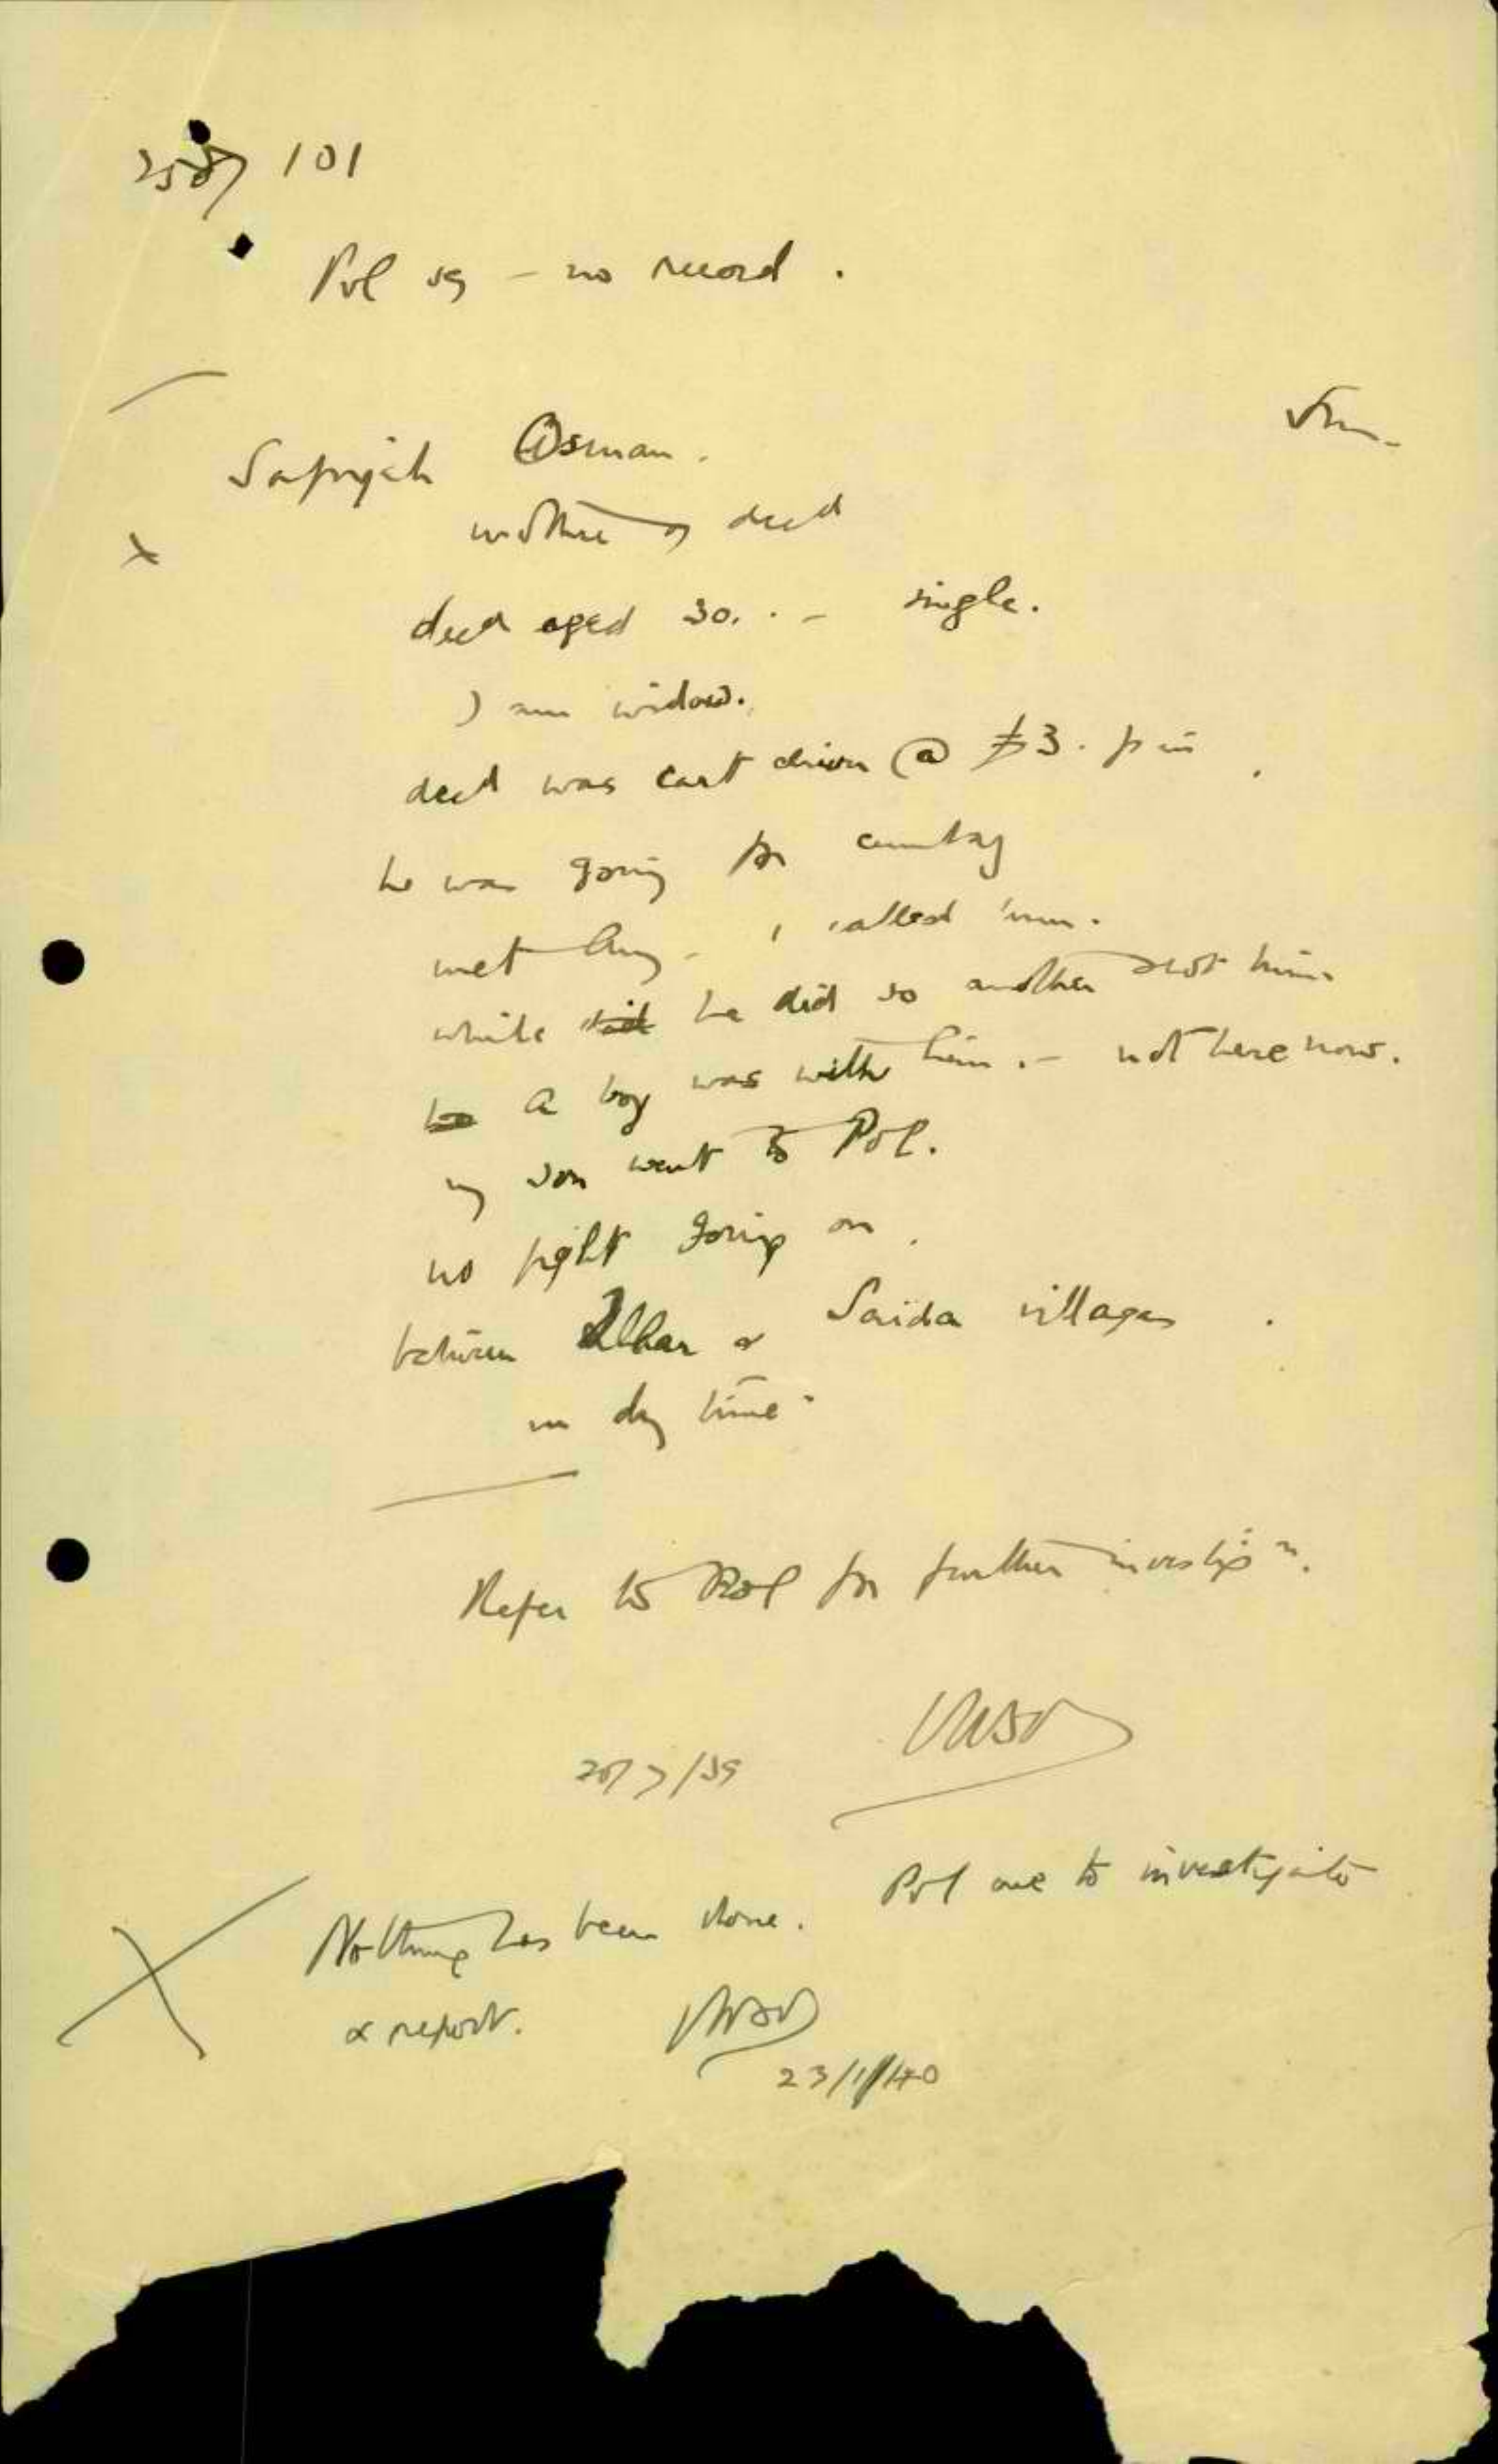 101
Pol sg - no record.
Safiyeh Osman.
mother of decd
decd aged 30. - single.
I am widow.
decd was cart driver @ £3. p m
he was going for
met Army - 1 called him.
while he did so another shot him
A boy was with him. - not here now.
my son went to Pol.
no fight going on.
between Illar & Saida villages.
in day time.
Refer to Pol for further investign.
/7/39
Nothing has been done. Pol are to investigate
& report.
23/1/40